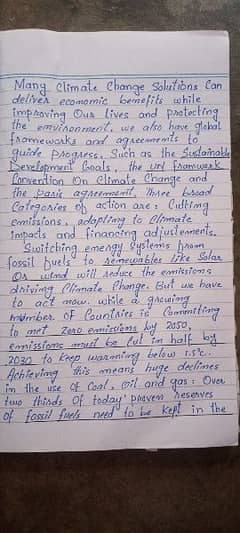 Many Climate Change Solutions Can
deliver economic benefits while
improving Our lives and protecting
the environment. we also have global
frameworks and agreements to
guide progress. Such as the Sustainable
Development Goals, the UN Framework
Convention On Climate Change and
the paris agreement, Three broad
Categories of action are: Cutting
emissions, adapting to Climate
Impacts and financing adjustements.
Switching energy Systems from
fossil fuels to renewables like Solar
Or wind will reduce the emissions
driving Climate Change. But we have
to act now. while a growing
number OF Countries is Committing
to met Zero emissions by 2050,
emissions must be Cut in half by
2030 to Keep warming below 1.5°c.
Achieving this means huge declines
in the use of Coal, oil and gas: Over
two thirds Of today proven reserves
of fossil fuels need to be Kept in the